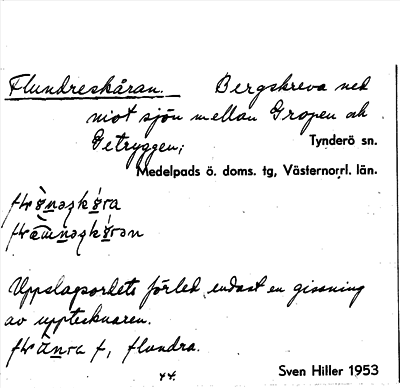 Flundreskåran. Bergskreva ned
mot sjön mellan Gropen och
Getryggen;
Tynderö sn.
Medelpads ö. doms. tg, Västernorrl. län.
Uppslagsordets förled endast en gissning
av upptecknaren.
f, flundra.
Sven Hiller 1953